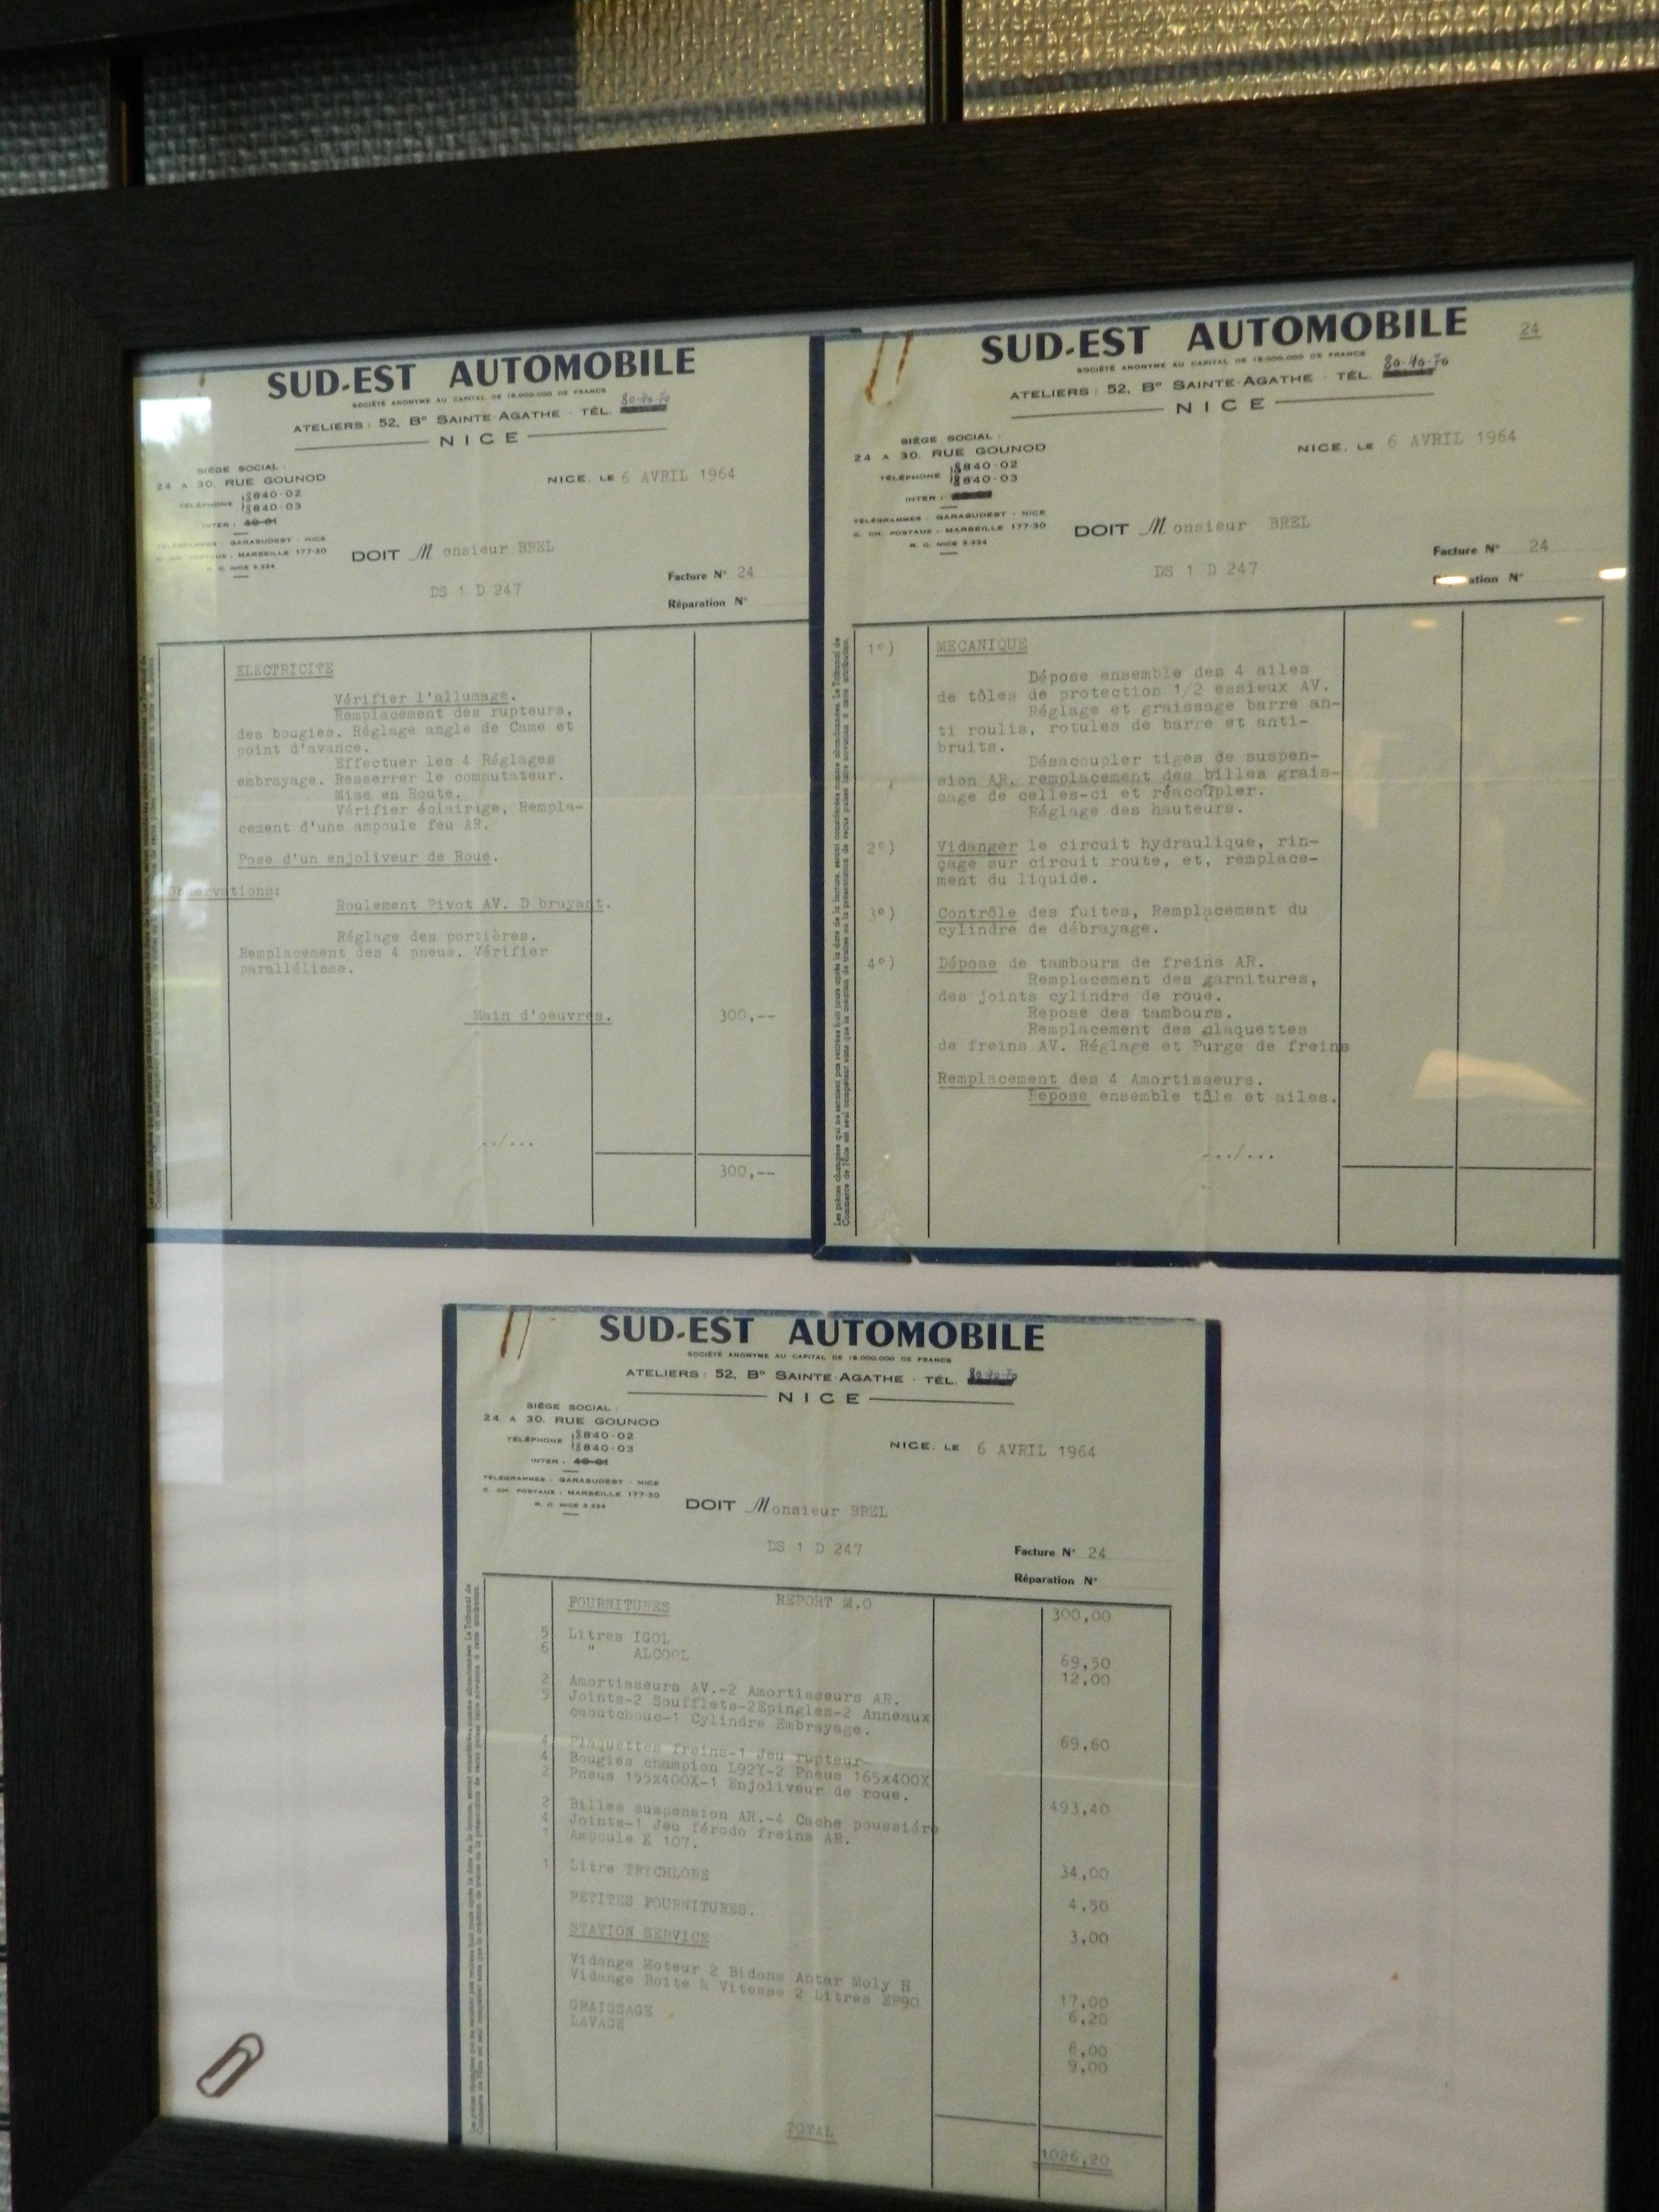 SUD-EST AUTOMOBILE
SOCIÉTÉ ANONYME AU CAPITAL DE 18.000.000 DE FRANCS
ATELIERS : 52, Bᴰ SAINTE-AGATHE - TÉL. 80-40-70
NICE
SIÈGE SOCIAL :
24 A 30, RUE GOUNOD
TÉLÉPHONE 8840-02
8840-03
INTER : 40-01
TÉLÉGRAMMES : GARASUDEST - NICE
C. CH. POSTAUX : MARSEILLE 177-30
R. C. NICE 3.334
NICE, LE 6 AVRIL 1964
DOIT Monsieur BREL
DS 1 D 247
Facture N° 24
Réparation N°
ELECTRICITE
Vérifier l'allumage.
Remplacement des rupteurs,
des bougies. Réglage angle de Came et
point d'avance.
Effectuer les 4 Réglages
embrayage. Resserrer le commutateur.
Mise en Route.
Vérifier éclairage, Rempla-
cement d'une ampoule feu AR.
Pose d'un enjoliveur de Roue.
Observations:
Roulement Pivot AV. D bruyant.
Réglage des portières.
Remplacement des 4 pneus. Vérifier
parallélisme.
Main d'oeuvres. 300,--
../...
300,--
SUD-EST AUTOMOBILE
24
SOCIÉTÉ ANONYME AU CAPITAL DE 18.000.000 DE FRANCS
ATELIERS : 52, Bᴰ SAINTE-AGATHE - TÉL. 80-40-70
NICE
SIÈGE SOCIAL :
24 A 30, RUE GOUNOD
TÉLÉPHONE 8840-02
8840-03
INTER :
TÉLÉGRAMMES : GARASUDEST - NICE
C. CH. POSTAUX : MARSEILLE 177-30
R. C. NICE 3.334
NICE, LE 6 AVRIL 1964
DOIT Monsieur BREL
DS 1 D 247
Facture N° 24
Réparation N°
1°) MECANIQUE
Dépose ensemble des 4 ailes
de tôles de protection 1/2 essieux AV.
Réglage et graissage barre an-
ti roulis, rotules de barre et anti-
bruits.
Désacoupler tiges de suspen-
sion AR, remplacement des billes grais-
sage de celles-ci et réacoupler.
Réglage des hauteurs.
2°) Vidanger le circuit hydraulique, rin-
çage sur circuit route, et, remplace-
ment du liquide.
3°) Contrôle des fuites, Remplacement du
cylindre de débrayage.
4°) Dépose de tambours de freins AR.
Remplacement des garnitures,
des joints cylindre de roue.
Repose des tambours.
Remplacement des plaquettes
de freins AV. Réglage et Purge de freins
Remplacement des 4 Amortisseurs.
Repose ensemble tôle et ailes.
../...
Les pièces changées qui ne seraient pas retirées huit jours après la date de la facture, seront considérées comme abandonnées. Le Tribunal de
Commerce de Nice est seul compétent sans que la création de traites ou la présentation de reçus puisse faire novation à cette attribution.
SUD-EST AUTOMOBILE
SOCIÉTÉ ANONYME AU CAPITAL DE 18.000.000 DE FRANCS
ATELIERS : 52, Bᴰ SAINTE-AGATHE - TÉL. 80-40-70
NICE
SIÈGE SOCIAL :
24 A 30, RUE GOUNOD
TÉLÉPHONE 8840-02
8840-03
INTER : 40-01
TÉLÉGRAMMES : GARASUDEST - NICE
C. CH. POSTAUX : MARSEILLE 177-30
R. C. NICE 3.334
NICE, LE 6 AVRIL 1964
DOIT Monsieur BREL
DS 1 D 247
Facture N° 24
Réparation N°
FOURNITURES REPORT M.O 300,00
5 Litres IGOL 69,50
6 " ALCOOL 12,00
2 Amortisseurs AV.-2 Amortisseurs AR.
5 Joints-2 Soufflets-2Epingles-2 Anneaux
caoutchouc-1 Cylindre Embrayage. 69,60
4 Plaquettes freins-1 Jeu rupteur-
4 Bougies champion L92Y-2 Pneus 165x400X
2 Pneus 155x400X-1 Enjoliveur de roue. 493,40
2 Billes suspension AR.-4 Cache poussière
4 Joints-1 Jeu férodo freins AR.
1 Ampoule K 107. 34,00
1 Litre TRYCHLORE 4,50
PETITES FOURNITURES. 3,00
STATION SERVICE
Vidange Moteur 2 Bidons Antar Moly H 17,00
Vidange Boite à Vitesse 2 Litres EP90 6,20
GRAISSAGE 8,00
LAVAGE 9,00
TOTAL 1026,20